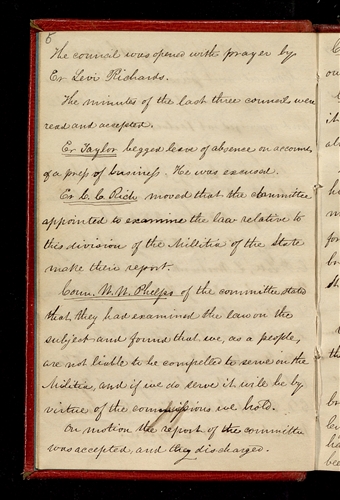 6
The council was opened with prayer by
Er Levi Richards.
The minutes of the last three councils were
read and accepted.
Er Taylor begged leave of absence on account
of a press of business. He was excused.
Er C. C. Rich, moved that the committee
appointed to examine the law relative to
this division of the Militia of the State
make their report.
Coun. W. W. Phelps of the committee stated
that they had examined the law on the
subject and found that we, as a people,
are not liable to be compelled to serve in the
Militia, and if we do serve it will be by
virtue of the commissions we hold.
On motion the report of the committee
was accepted, and they discharged.